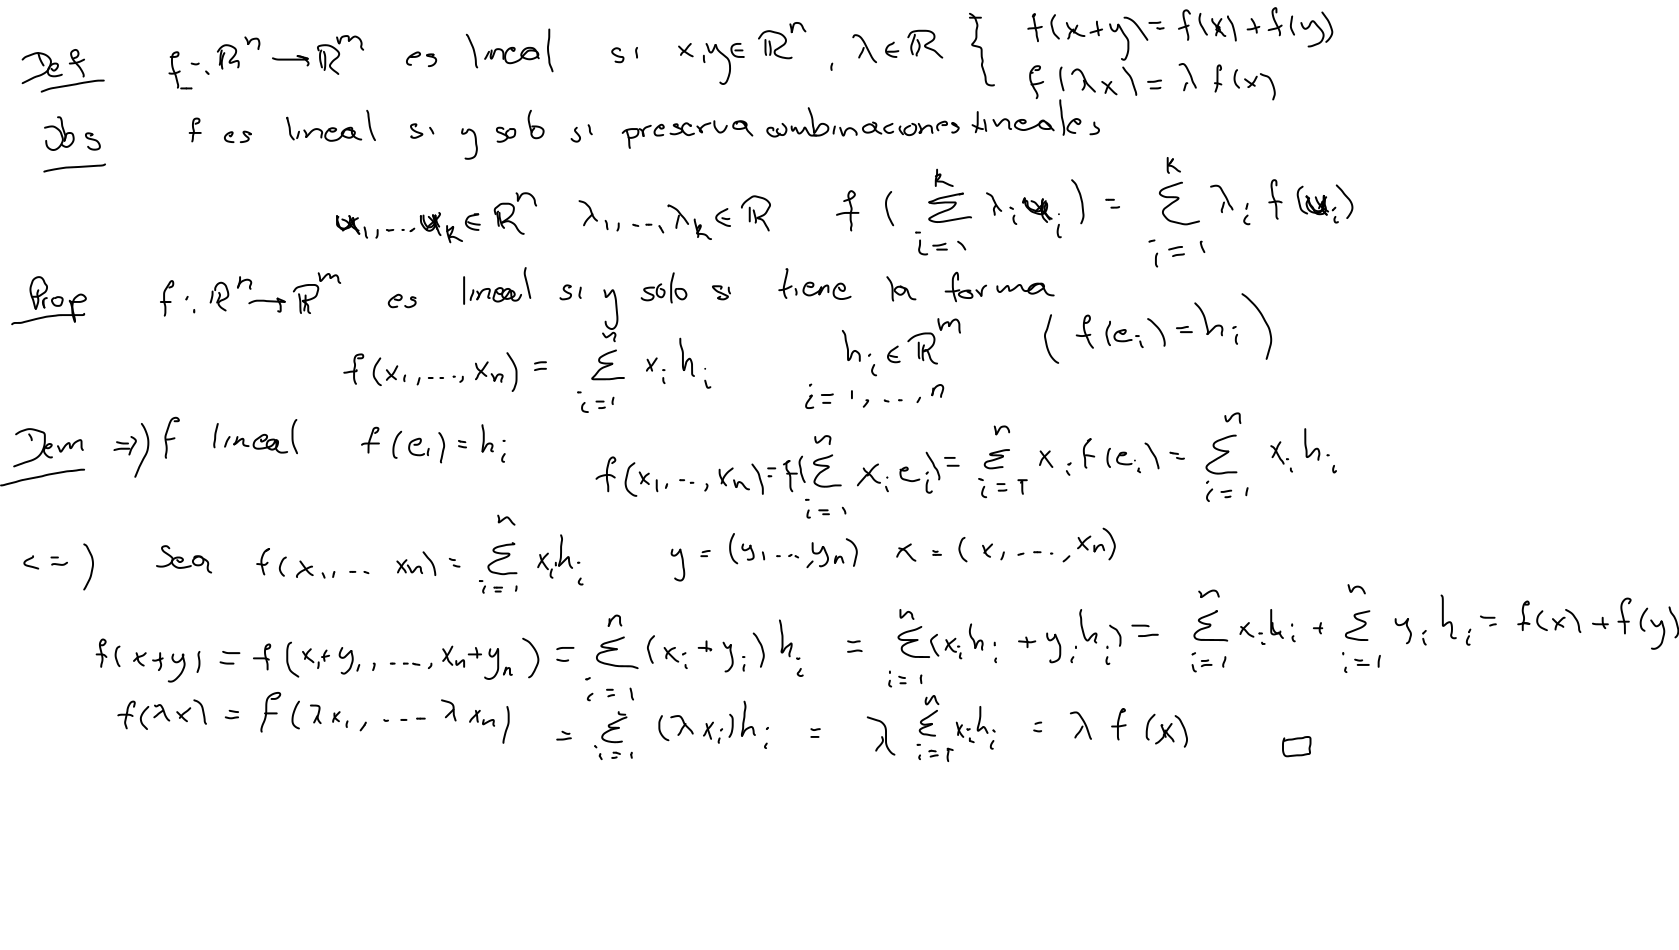 Def f: ℝⁿ → ℝᵐ es lineal si x,y ∈ ℝⁿ, λ ∈ ℝ { f(x+y) = f(x) + f(y)
f(λx) = λ f(x)
Obs f es lineal si y solo si preserva combinaciones lineales
u₁,...u_k ∈ ℝⁿ λ₁,...,λ_k ∈ ℝ f ( ∑_{i=1}^{k} λ_i u_i ) = ∑_{i=1}^{k} λ_i f(u_i)
Prop f: ℝⁿ → ℝᵐ es lineal si y solo si tiene la forma
f(x₁,...,x_n) = ∑_{i=1}^{n} x_i h_i h_i ∈ ℝᵐ i=1,...,n ( f(e_i) = h_i )
Dem ⇒) f lineal f(e_i) = h_i f(x₁,..,x_n) = f(∑_{i=1}^{n} x_i e_i) = ∑_{i=1}^{n} x_i f(e_i) = ∑_{i=1}^{n} x_i h_i
<=) Sea f(x₁,... x_n) = ∑_{i=1}^{n} x_i h_i y = (y₁...,y_n) x = (x₁...,x_n)
f(x+y) = f(x₁+y₁,...,x_n+y_n) = ∑_{i=1}^{n} (x_i+y_i) h_i = ∑_{i=1}^{n} (x_i h_i + y_i h_i) = ∑_{i=1}^{n} x_i h_i + ∑_{i=1}^{n} y_i h_i = f(x) + f(y)
f(λx) = f(λx₁,...λx_n) = ∑_{i=1}^{n} (λx_i)h_i = λ ∑_{i=1}^{n} x_i h_i = λ f(x) □